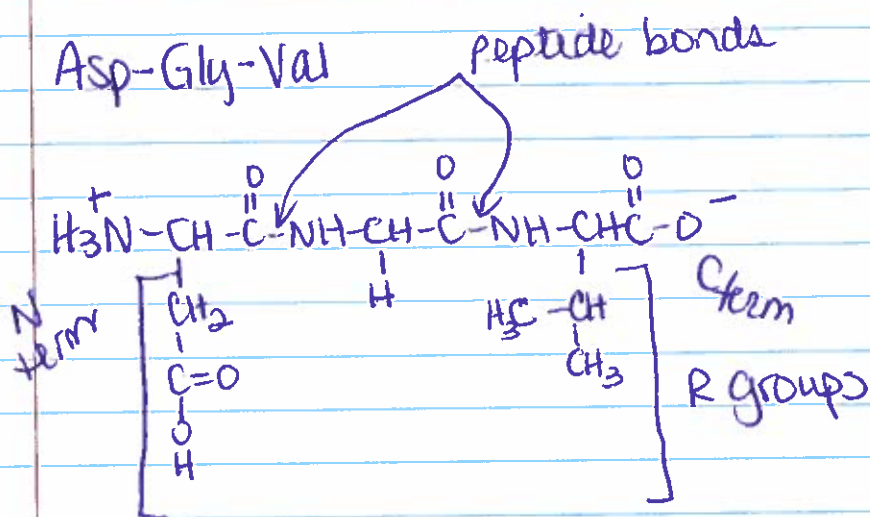 Asp-Gly-Val
peptide bonds
O O O
+
H3N-CH-C-NH-CH-C-NH-CHC-O-
N term
CH2 H H3C-CH
C=O CH3
O
H
C term
R groups